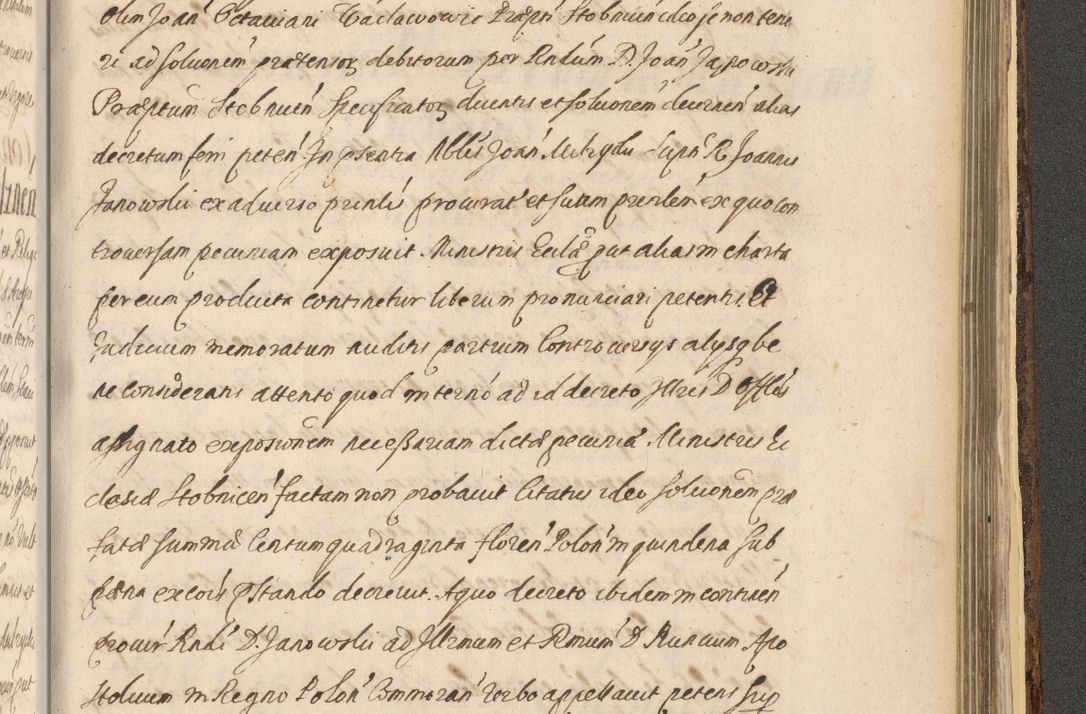 Olim Joan̄ Octaviani Wacławowic Præpti Stobnicen ideo se non tene
ri ad soluonem prætensoꝝ debitorum per Rndum D. Joan̄ Janowski
Præptum Stobnicen̄ Specificatoꝝ ducentis et soluonem decernen̄ alias
decretum ferri peten̄. In pssentia Nblis Joan̄ Joannis
Janowski ex adverso prinlis procurat̄ et suum prinlem ex quo con
troversam pecuniam exposuit. Ministris Eccla put alias in charta
per eum producta continetur liberum pronunciari petentis. Et
Judicium memoratum auditis partium Controversijs alysqbe
ne Consideratis attento quod in termo ad id decreto Illris D Offlis
assignato expositionem necessariam dictæ pecuniæ Ministris Ec
clesiæ Stobnicen̄ factam non probavit Citatus ideo soluonem præ
fatæ summæ Centum quadraginta floren̄ Polon̄ in quindena sub
pæna excois pstando decrevit. A quo decreto ibidem in continen̄
procur̄ Rndi D. Janowski ad Illmum et Rmum D Nuncium Apo
stolicum in Regno Polon̄ Commoran̄ verbo appellavit petens sup